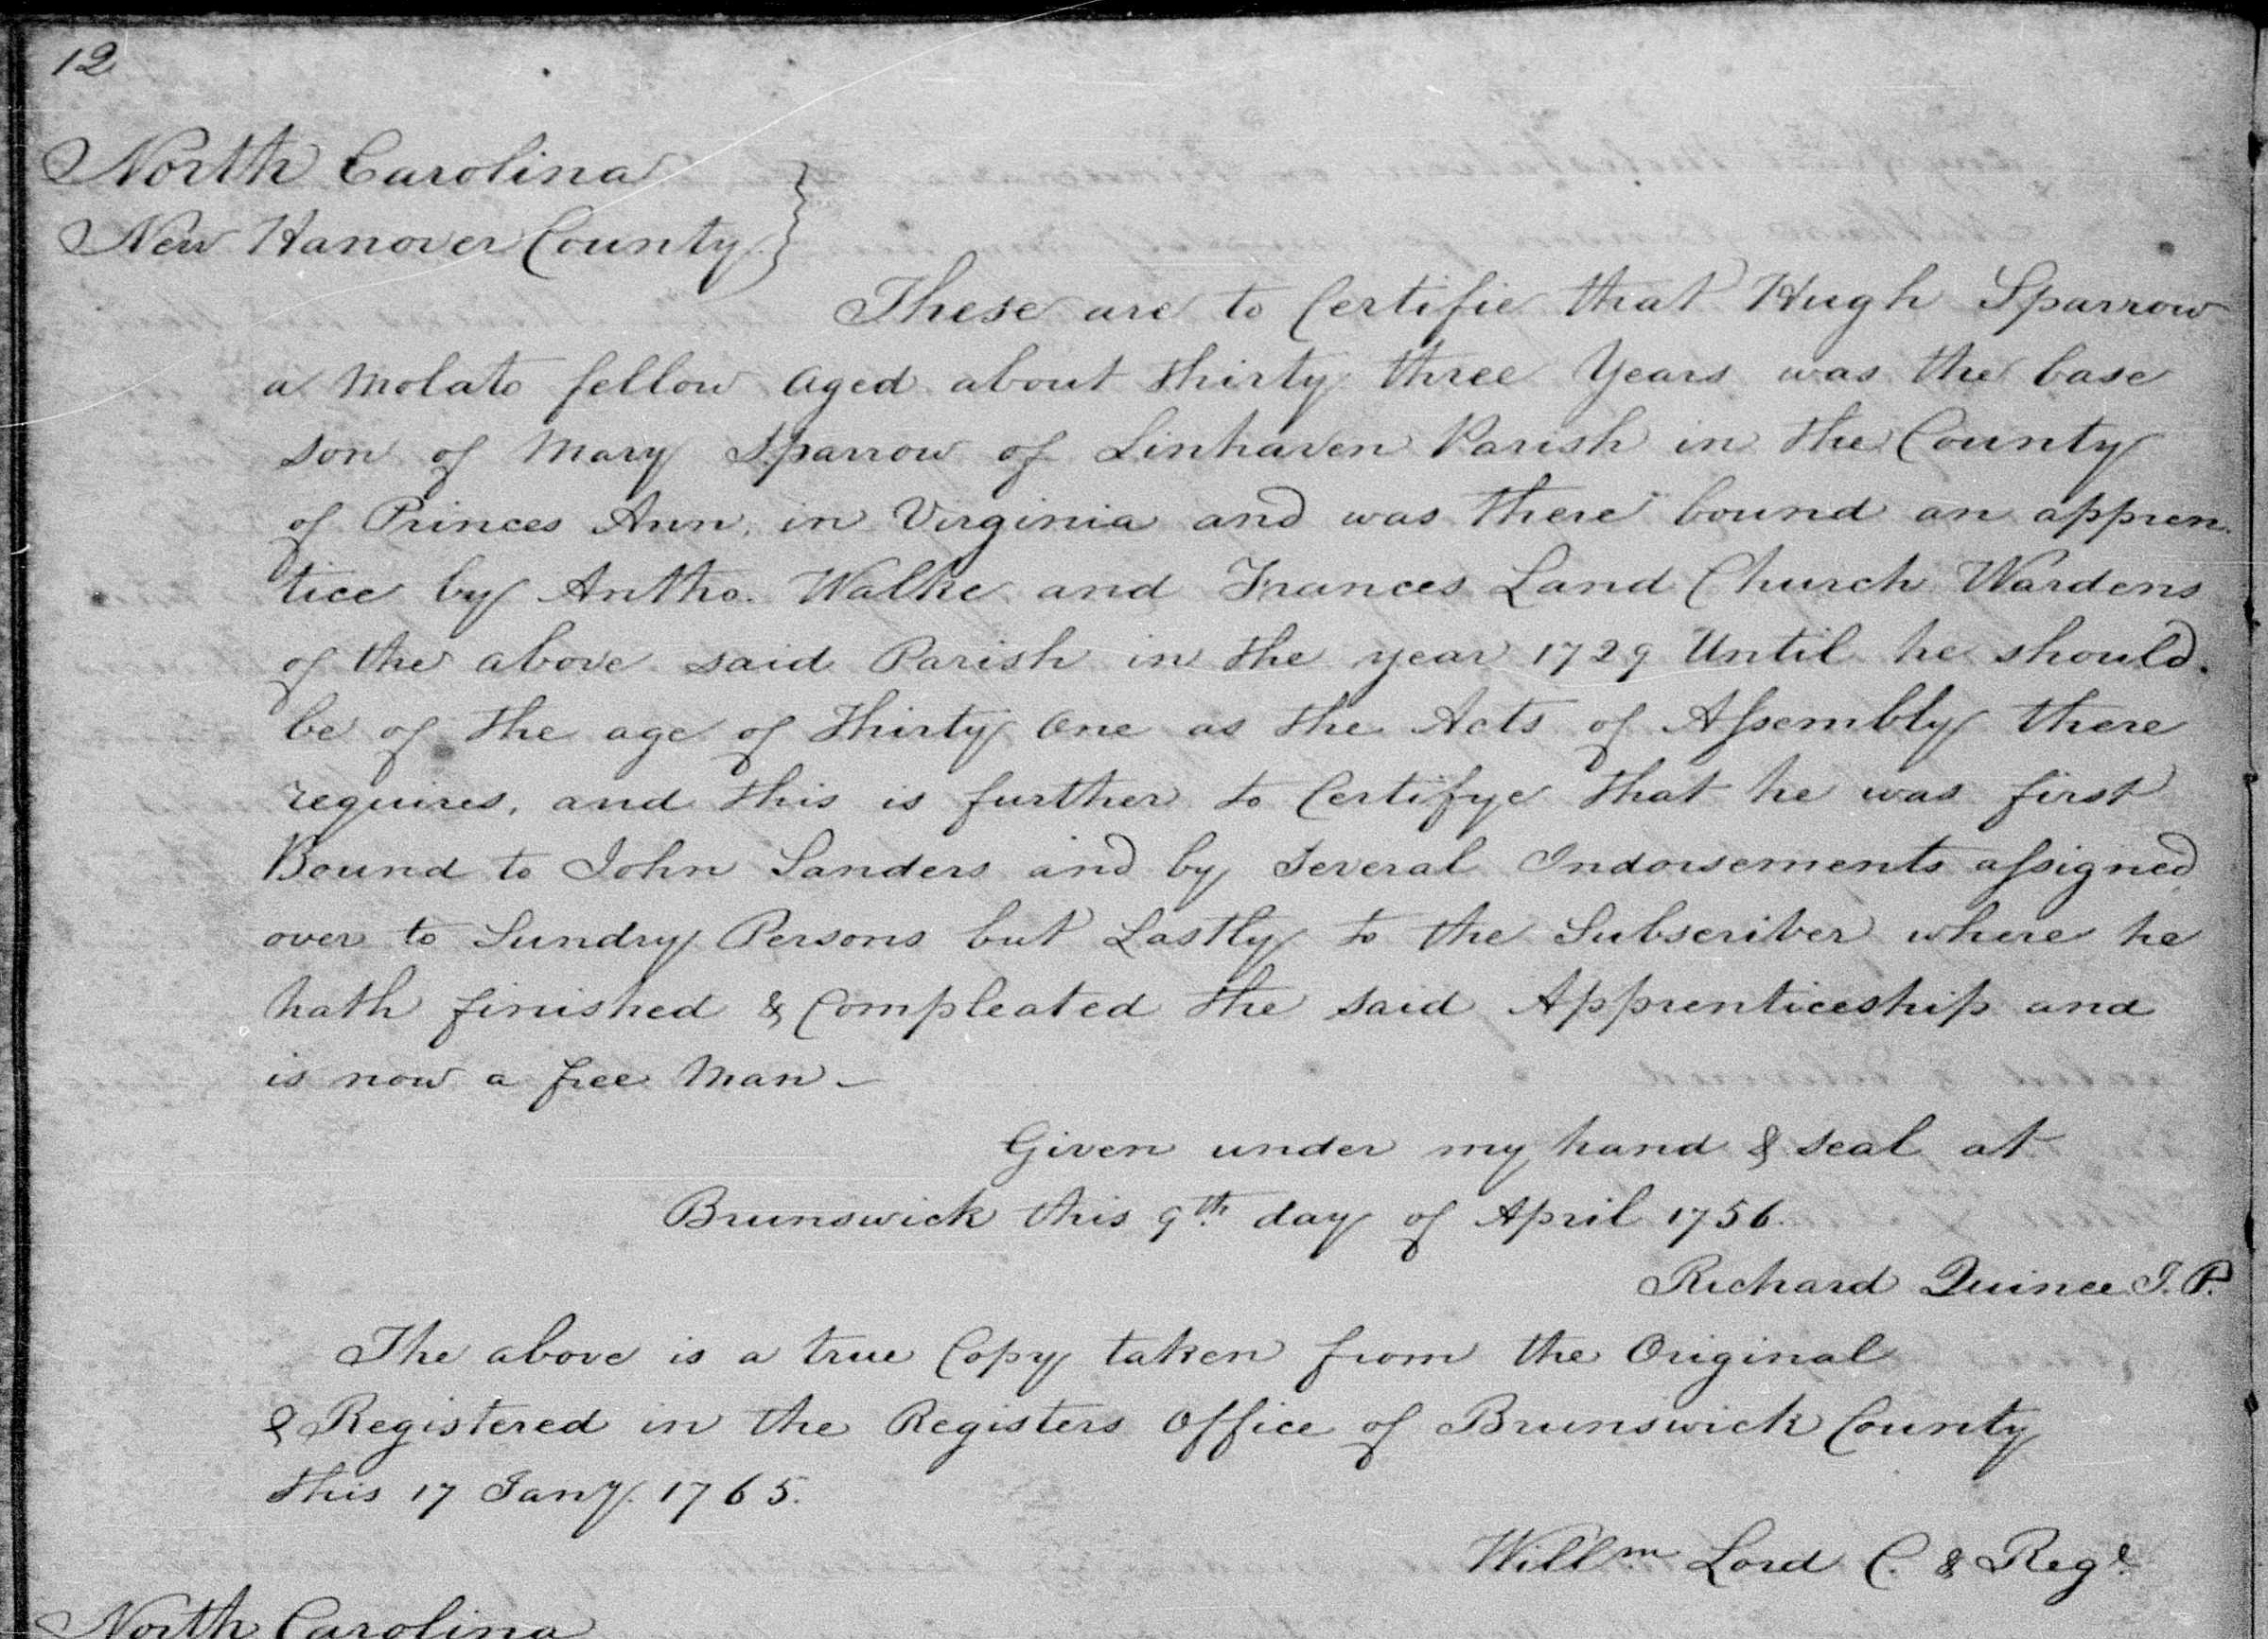 12
North Carolina
New Hanover County
These are to Certifie that Hugh Sparrow
a Molato fellow aged about thirty three Years was the base
son of Mary Sparrow of Linhaven Parish in the County
of Princes Ann, in Virginia and was there bound an appren
tice by Antho. Walke and Frances Land Church Wardens
of the above said Parish in the year 1729 Until he should
be of the age of thirty one as the Acts of Assembly there
requires, and this is further to Certifye that he was first
Bound to John Sanders and by Several Indorsements assigned
over to Sundry Persons but Lastly to the Subscriber where he
hath finished & Compleated the said Apprenticeship and
is now a free Man —
Given under my hand & seal at
Brunswick this 9th day of April 1756.
Richard Quince J. P.
The above is a true Copy taken from the Original
& Registered in the Registers office of Brunswick County
this 17 Jany. 1765.
Willm Lord C. & Regr
North Carolina